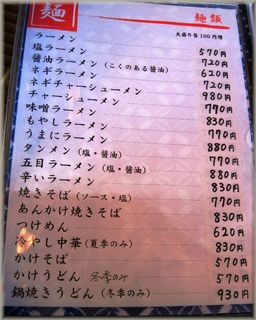 麺
麺類
大盛り各100円増
ラーメン 570円
塩ラーメン 720円
醤油ラーメン(こくのある醤油) 620円
ネギラーメン 720円
ネギチャーシューメン 980円
チャーシューメン 770円
味噌ラーメン 830円
もやしラーメン 770円
うまにラーメン 880円
タンメン(塩・醤油) 770円
五目ラーメン(塩・醤油) 880円
辛いラーメン 830円
焼きそば(ソース・塩) 770円
あんかけ焼きそば 830円
つけめん 620円
冷やし中華(夏季のみ) 830円
かけそば 570円
かけうどん 冬季のみ 570円
鍋焼きうどん(冬季のみ) 930円